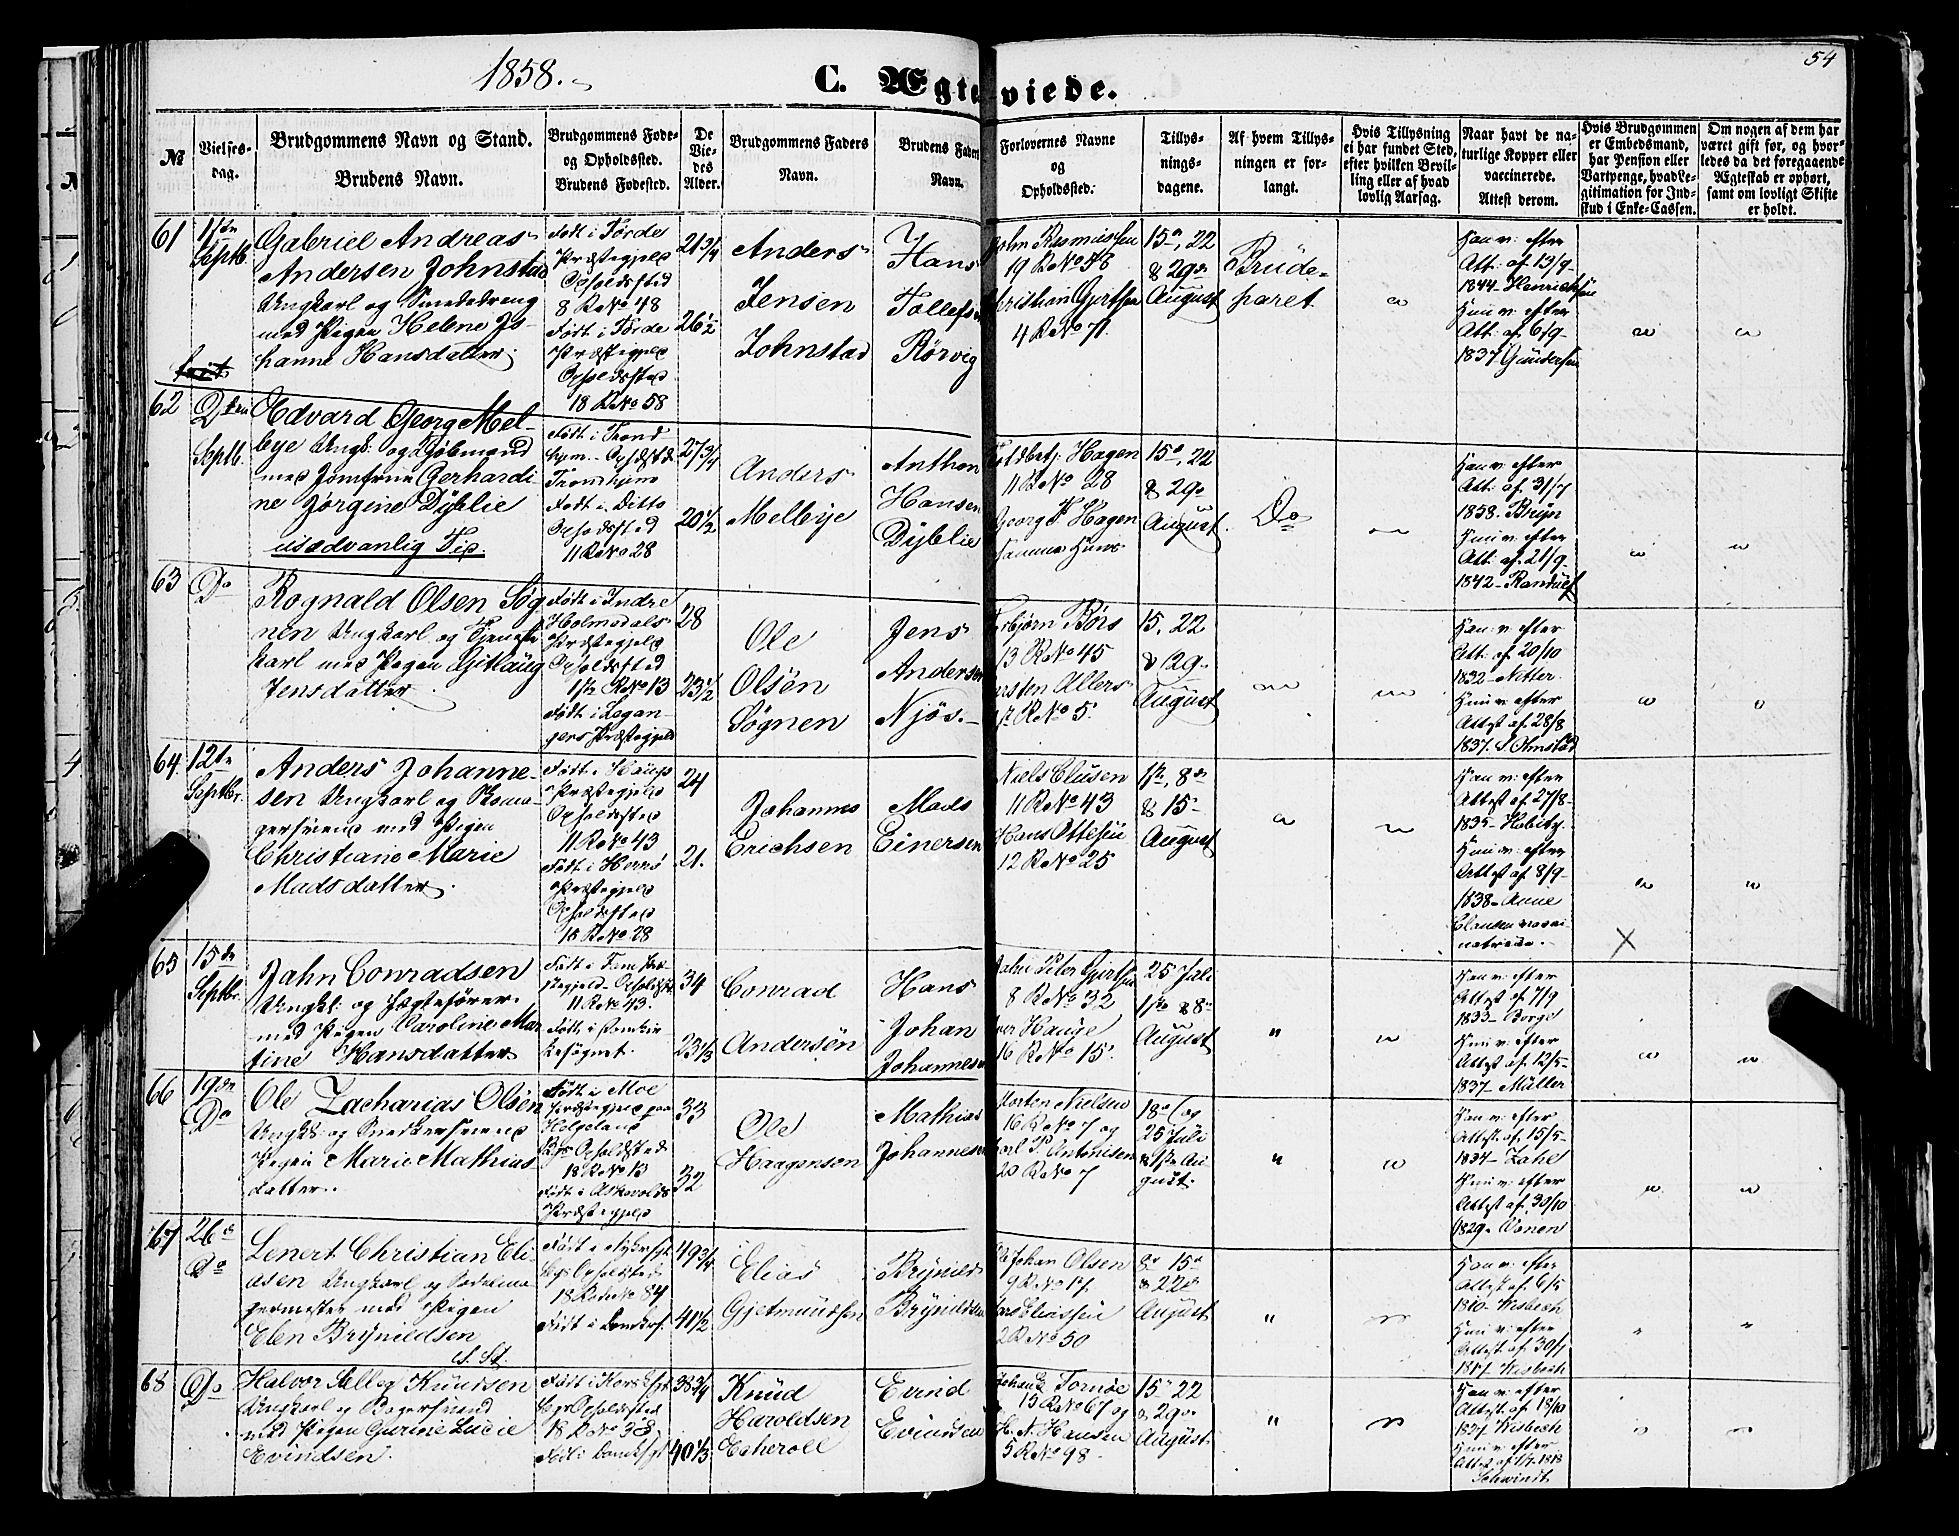 1858.
C. Ægteviede.
54
№
Vielses-
dag.
Brudgommens Navn og Stand.
Brudens Navn.
Brudgommens Føde-
og Opholdssted.
Brudens Fødested.
De
Vie-
des
Alder.
Brudgommens Faders
Navn.
Brudens Faders
Navn.
Forlovernes Navne
og
Opholdssted.
Tillys-
nings-
dagene.
Af hvem Tillys-
ningen er for-
langt.
Hvis Tillysning
ei har fundet Sted,
efter hvilken Bevil-
ling eller af hvad
lovlig Aarsag.
Naar havt de na-
turlige Kopper eller
vaccinerede.
Attest derom.
Hvis Brudgommen
er Embedsmand,
har Pension eller
Vartpenge, hvad Le-
gitimation for Ind-
skud i Enke-Cassen.
Om nogen af dem har
været gift før, og hvor-
ledes da det foregaaende
Ægteskab er ophørt,
samt om lovligt Skifte
er holdt.
61
1ste
Septb.
Gabriel Andreas
Andersen Johnstad
Ungkarl og Smededreng
med Pigen Helene Jo-
hanne Hansdatter
Født i Førde
Præstegjeld
Opholdssted
8 R No 48
Født i Førde
Præstegjeld
Opholdssted
18 R No 58
21 3/4
26 1/2
Anders
Jensen
Johnstad
Hans
Tollefsen
Rörvig
John Rasmussen
19 R No 58
Christian Gjertsen
4 R No 71
15de, 22
& 29de
August
Brude-
paret
Han v: efter
Att: af 13/9
1844 Henrichsen
Hun v: efter
Att: af 6/9
1837 Gundersen
62
2den
Septb.
Edvard Georg Mel-
bye Ungk. og Kjøbmand
med Jomfrue Gerhardi-
ne Jörgine Dyblie
usædvanlig Tid.
Født i Trond-
hjem Opholdssted
Trondhjem
Født i Ditto
Opholdssted
11 R No 28
27 3/4
20 1/2
Anders
Melbye
Anthon
Hansen
Dyblie
Hagen
11 R No 28
Georg F Hagen
samme Huus
15de, 22
& 29de
August
Do
Han v: efter
Att: af 31/7
1858. Bruun
Hun v: efter
Att: af 21/9
1842 Randulf
63
Do
Rognald Olsen Sög-
nen Ungkarl og Tjeneste-
karl med Pigen Gitlaug
Jensdatter
Født i Indre
Holmedals
Præstegjeld
Opholdssted
1ste R No 13
Født i Legan-
gers Præstegjeld
28
23 1/2
Ole
Olsen
Sögnen
Jens
Andersen
Njös
Torbjörn Börs
13 R No 45
Carsten Allers
17 R No 5
15, 22
& 29
August
Han v: efter
Att: af 20/10
1832 Netter
Hun v: efter
Attest af 28/8
1837. S Omstad
64
12te
Septbr.
Anders Johanne-
sen Ungkarl og Skoma-
gersvend med Pigen
Christiane Marie
Madsdatter
Født i Haugs
Præstegjeld
Opholdssted
11 R No 43
Født i Herrö
Præstegjeld
Opholdssted
18 R No 28
24
21.
Johannes
Erichsen
Mads
Einersen
Niels Clusen
11 R No 43
Hans Ottesen
12 R No 25
1ste, 8de
& 15
August
Han v: efter
Attest af 27/8
1835
Hun v: efter
Attest af 8/9
1838 Anne
Clausen vacci-
natrice.
65
15de
Septbr.
Jahn Conradsen
Ungk: og Fægtefører
med Pigen Caroline Mar-
tine Hansdatter
Født i Fane Præ-
stegjeld Opholdsst
11 R No 43.
Født i Domkir-
kesognet
34
23 1/3
Conrad
Andersen
Hans
Johan
Johannesen
Peter Gjertsen
8 R No 32
Iver Hauge
16 R No 15
25 Juli
1ste & 8de
August
Han v: efter
Attest af 7/9
1833 Borge
Hun v: efter
Attest af 12/5
1837 Müller
66
19de
Do
Ole Zacharias Olsen
Ungk: og Snedkersvend
Pigen Marie Mathias
datter
Født i Moe
Præstegjeld paa
Helgeland
Opholdssted
18 R No 13
Født i Askevolds
Præstegjeld
33
32
Ole
Haagensen
Mathias
Johannesen
Morten Nielsen
16 R No 7 og
Carl P. Antonisen
20 R No 7
18de og
25 Juli
& 1ste Au-
gust
Han v: efter
Attest af 15/5
1834 Zahl
Hun v: efter
Attest af 30/10
1829
67
26de
Do
Lenert Christian Eli-
asen Ungkarl og Sadelma-
germester med Pigen
Elen Brynildsen
Født i Nykirkesogn
Opholdssted
18 Rode No 84
Født i Domkirkes.
49 3/4
41 1/2
Elias
Gjetmundsen
Brynild
Brynildsen
Ole Johan Olsen
9 R No 17
Eliassen
2 R No 50
8de 15de
& 22de
August
Han v: efter
Attest af 6/5
1810 Wisbech
Hun v: efter
Attest af 30/1
1817 Wisbech
68
Do
Halvor Selleg Knudsen
Ungkarl og Bagersvend
med Pigen Gurine Lucie
Evindsen
Født i Korskirke
Opholdssted
18 R No 38
Født i Domkirkesogn
38 3/4
40 1/3
Knud
Haroldsen
Echeroll
Evind
Evindsen
Johan E Tornöe
15 R No 67 og
H. N. Hansen
5 R No 98
15 22
& 29de
August
Han v: efter
Attest af 18/10
1827 Wisbech
Hun v: efter
Attest af 1/7 1818
Schwindt